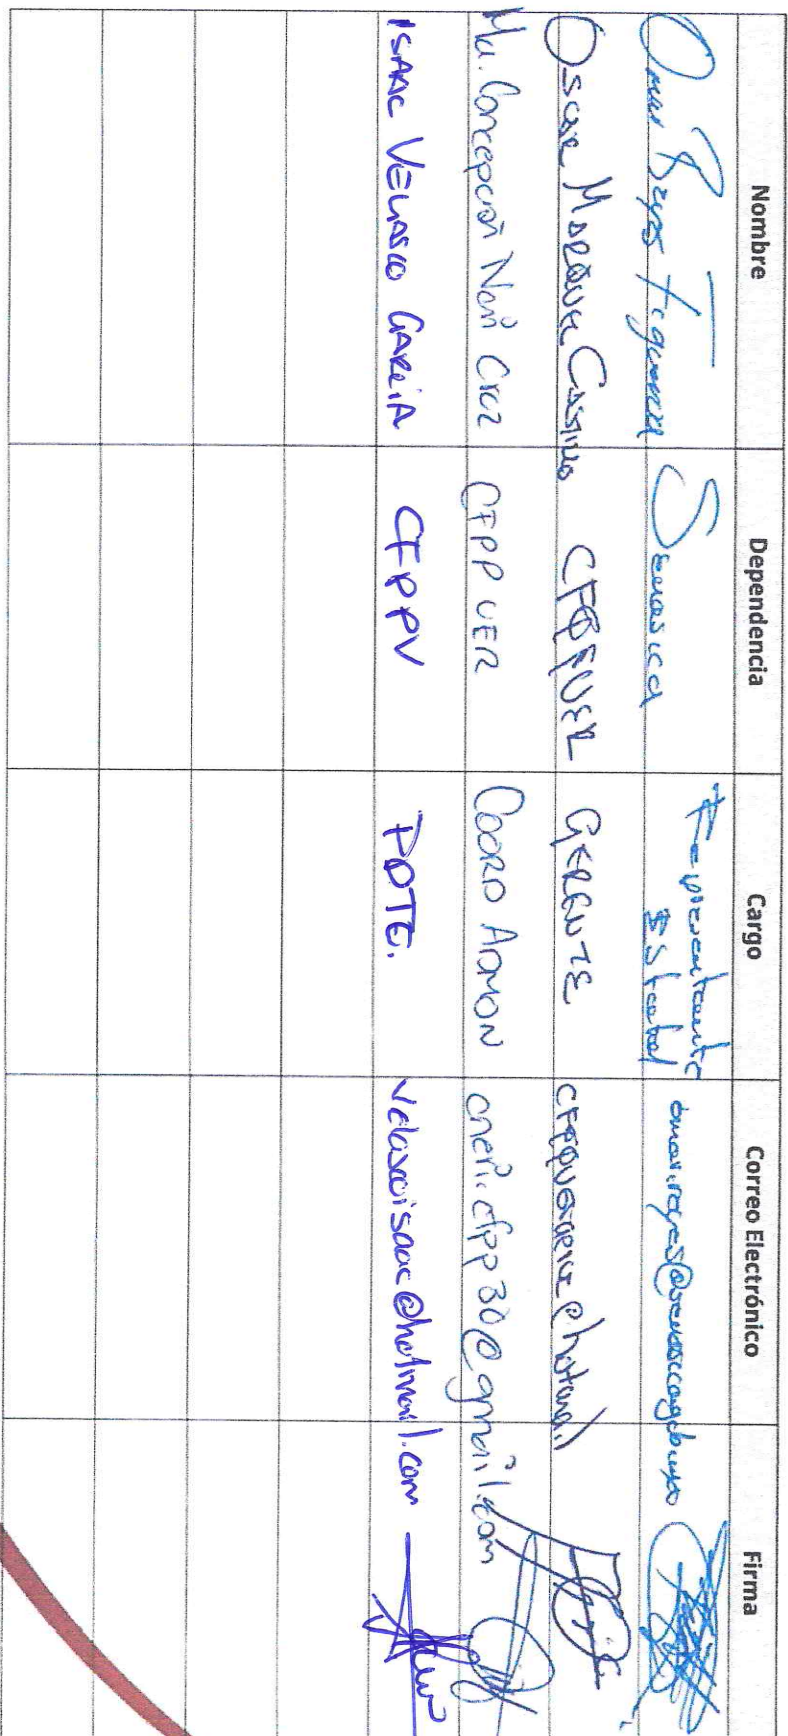 Nombre Dependencia Cargo Correo Electrónico Firma
Omar Reyes Figueroa Senasica Representante
Estatal
Oscar Marquez Castillo GERENTE
Ma. Concepción Neri Cruz CFPPVER COORD ADMON cneri.cfpp30@gmail.com
ISAAC VELASCO GARCIA CFPPV PDTE. velascoisaac@hotmail.com